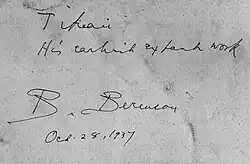 Titian
His earliest extant work
B. Berenson
Oct. 28, 1937